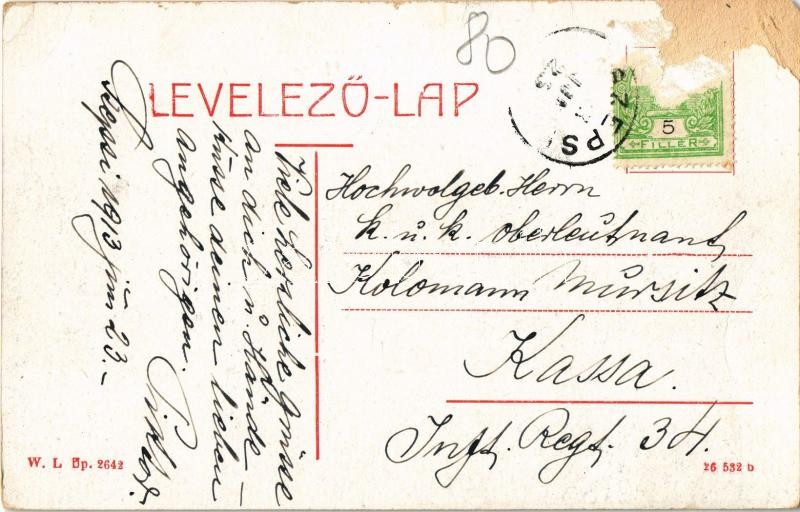 80
LEVELEZŐ-LAP
5
FILLER
Viele herzliche Grüsse
an dich u. Hände-
küsse deinen lieben
angehörigen.
1913 jún 23.-
Hochwolgeb. Herrn
k. u. k. Oberleutnant
Kolomann Mursitz
Kassa.
Inft. Regt. 34.
W. L. Bp. 2642
26 532 b